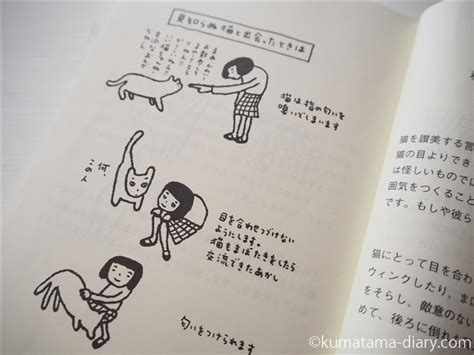 見知らぬ猫と出会ったときは
猫は指の匂いを
嗅いでしまいます
何、
この人
目を合わせつづけない
ようにします。
猫もまばたきをしたら
交流できたあかし
匂いをつけられます
猫を讃美する言
猫の目よりでき
は怪しいものでい
囲気をつくること
です。もしや彼ら
猫にとって目を合わ
ウィンクしたり、ま
をそらし、敵意のない
めて、後ろに倒れた
©kumatama-diary.com